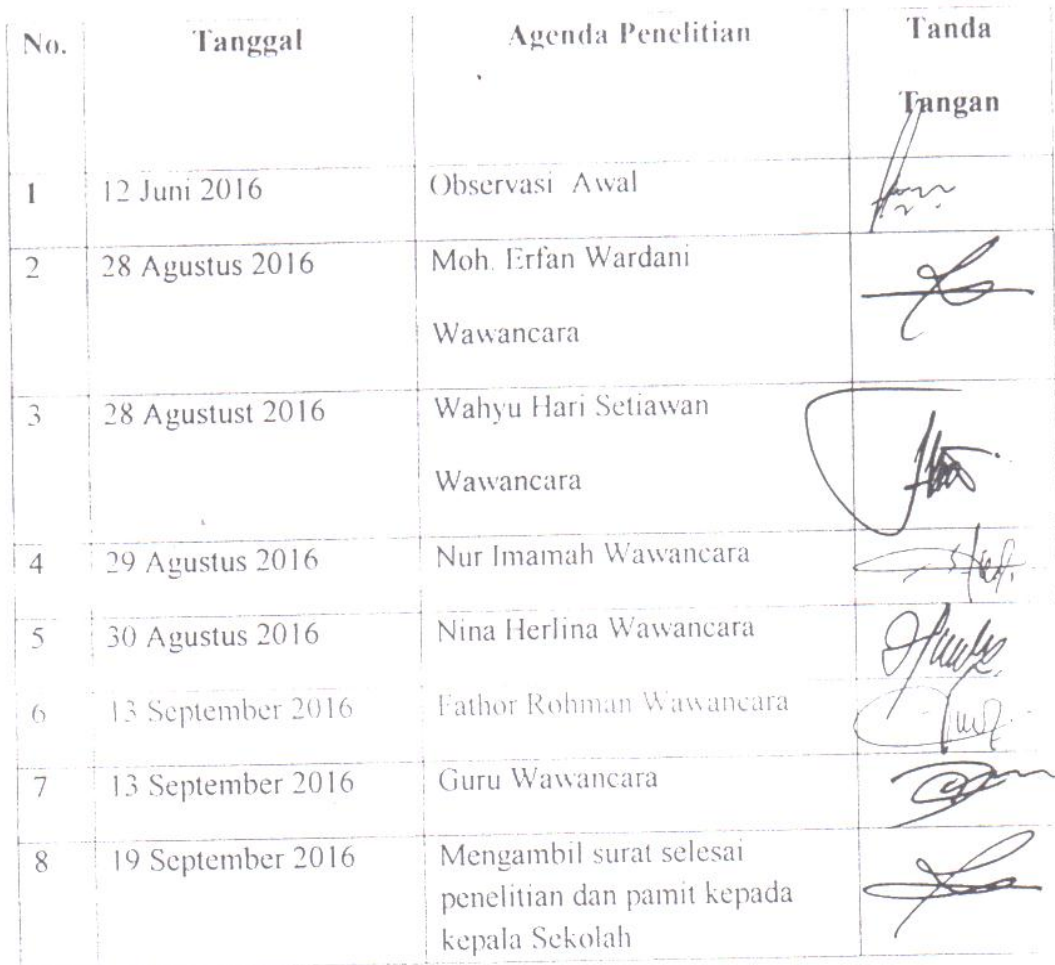 No. Tanggal Agenda Penelitian Tanda
Tangan
1 12 Juni 2016 Observasi Awal
2 28 Agustus 2016 Moh. Erfan Wardani
Wawancara
3 28 Agustust 2016 Wahyu Hari Setiawan
Wawancara
4 29 Agustus 2016 Nur Imamah Wawancara
5 30 Agustus 2016 Nina Herlina Wawancara
6 13 September 2016 Fathor Rohman Wawancara
7 13 September 2016 Guru Wawancara
8 19 September 2016 Mengambil surat selesai
penelitian dan pamit kepada
kepala Sekolah